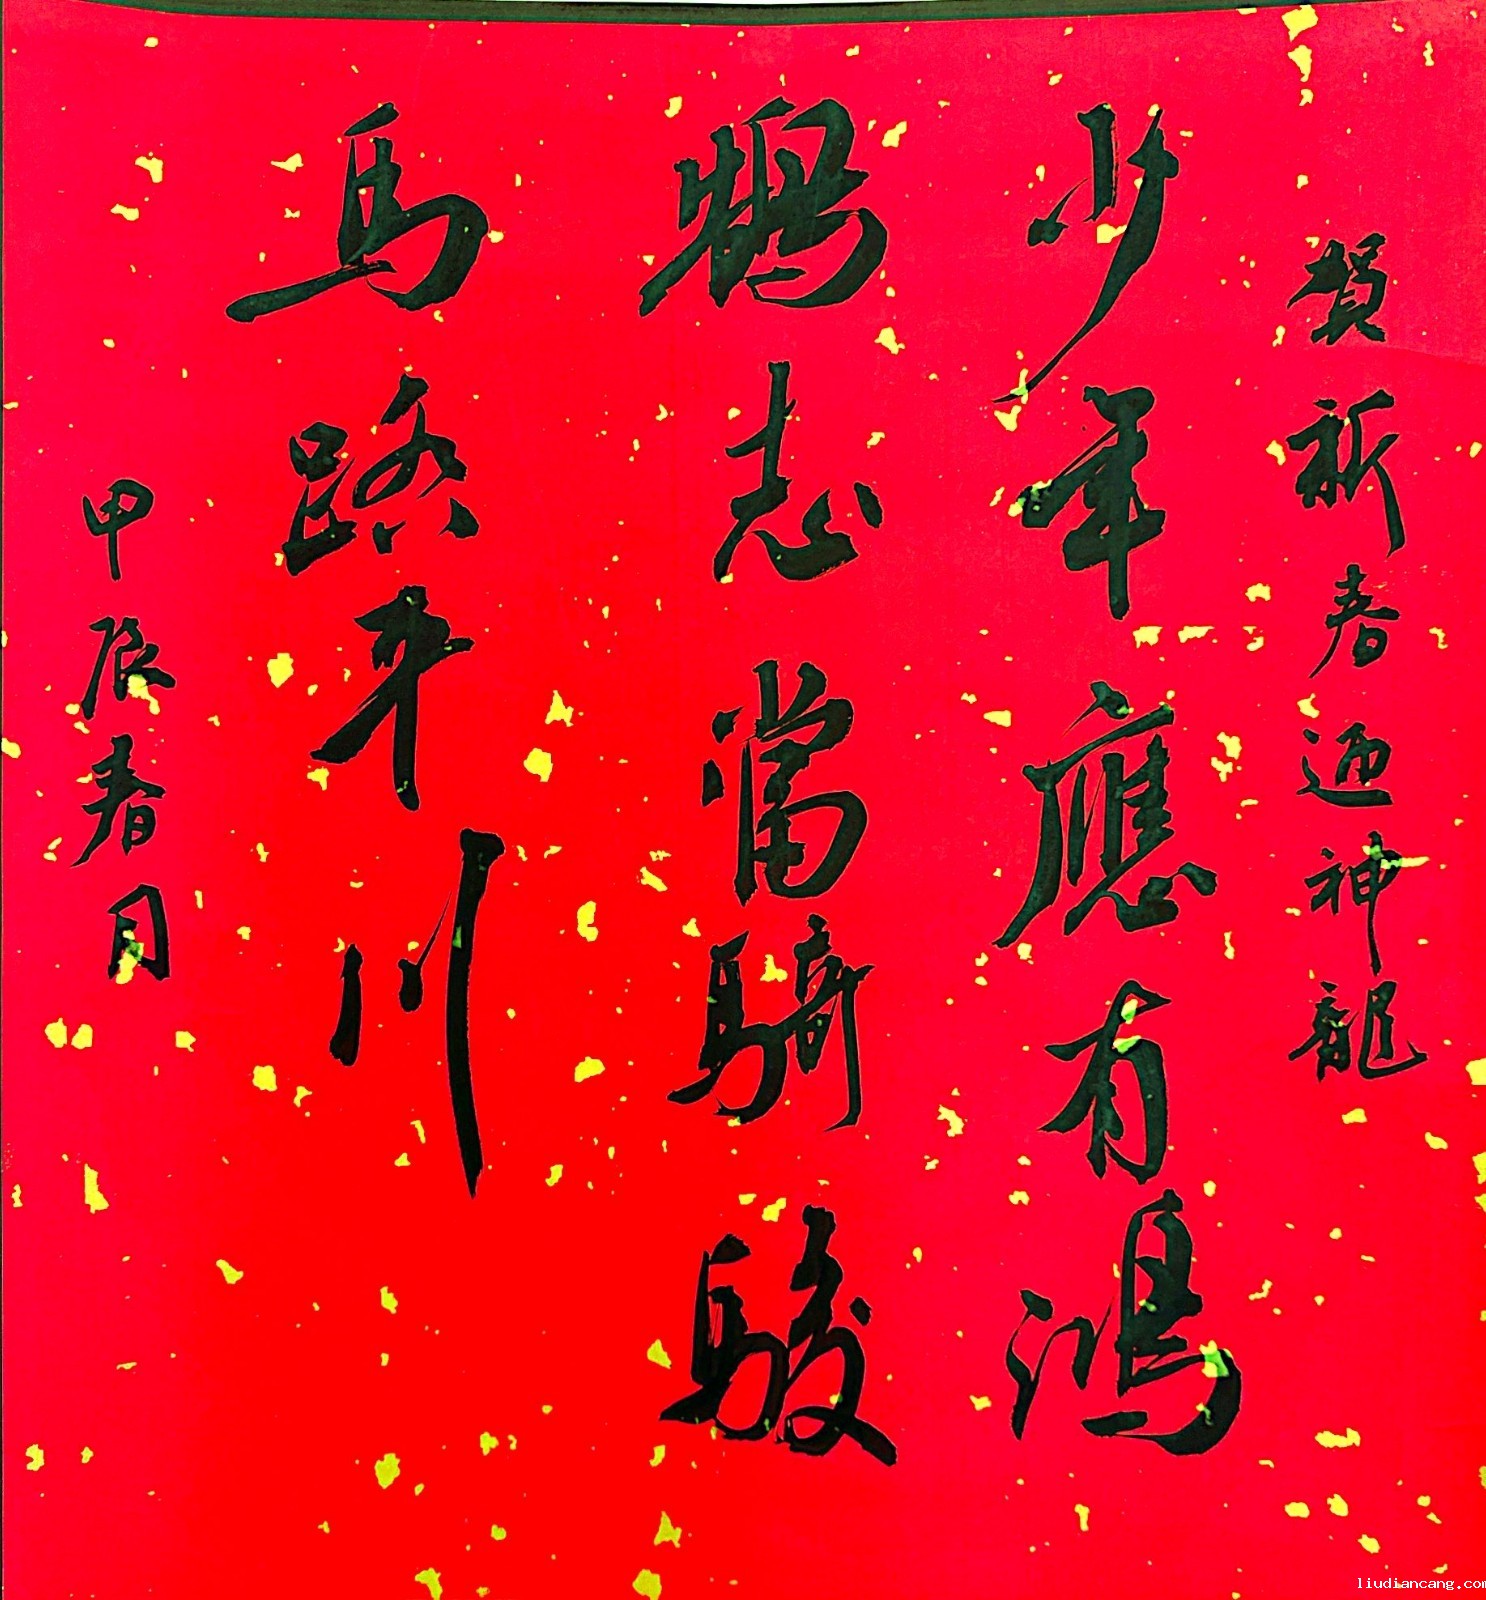 賀新春迎神龍
少年應有鴻
鵠志當騎駿
馬踏平川
甲辰春月
liudiancang.com